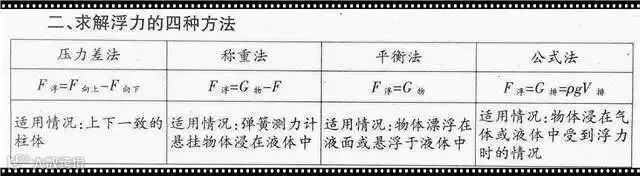 二、求解浮力的四种方法
压力差法 称重法 平衡法 公式法
F浮=F向上-F向下 F浮=G物-F F浮=G物 F浮=G排=ρgV排
适用情况:上下一致的 适用情况:弹簧测力计 适用情况:物体漂浮在 适用情况:物体浸在气
柱体 悬挂物体浸在液体中 液面或悬浮于液体中 体或液体中受到浮力
时的情况